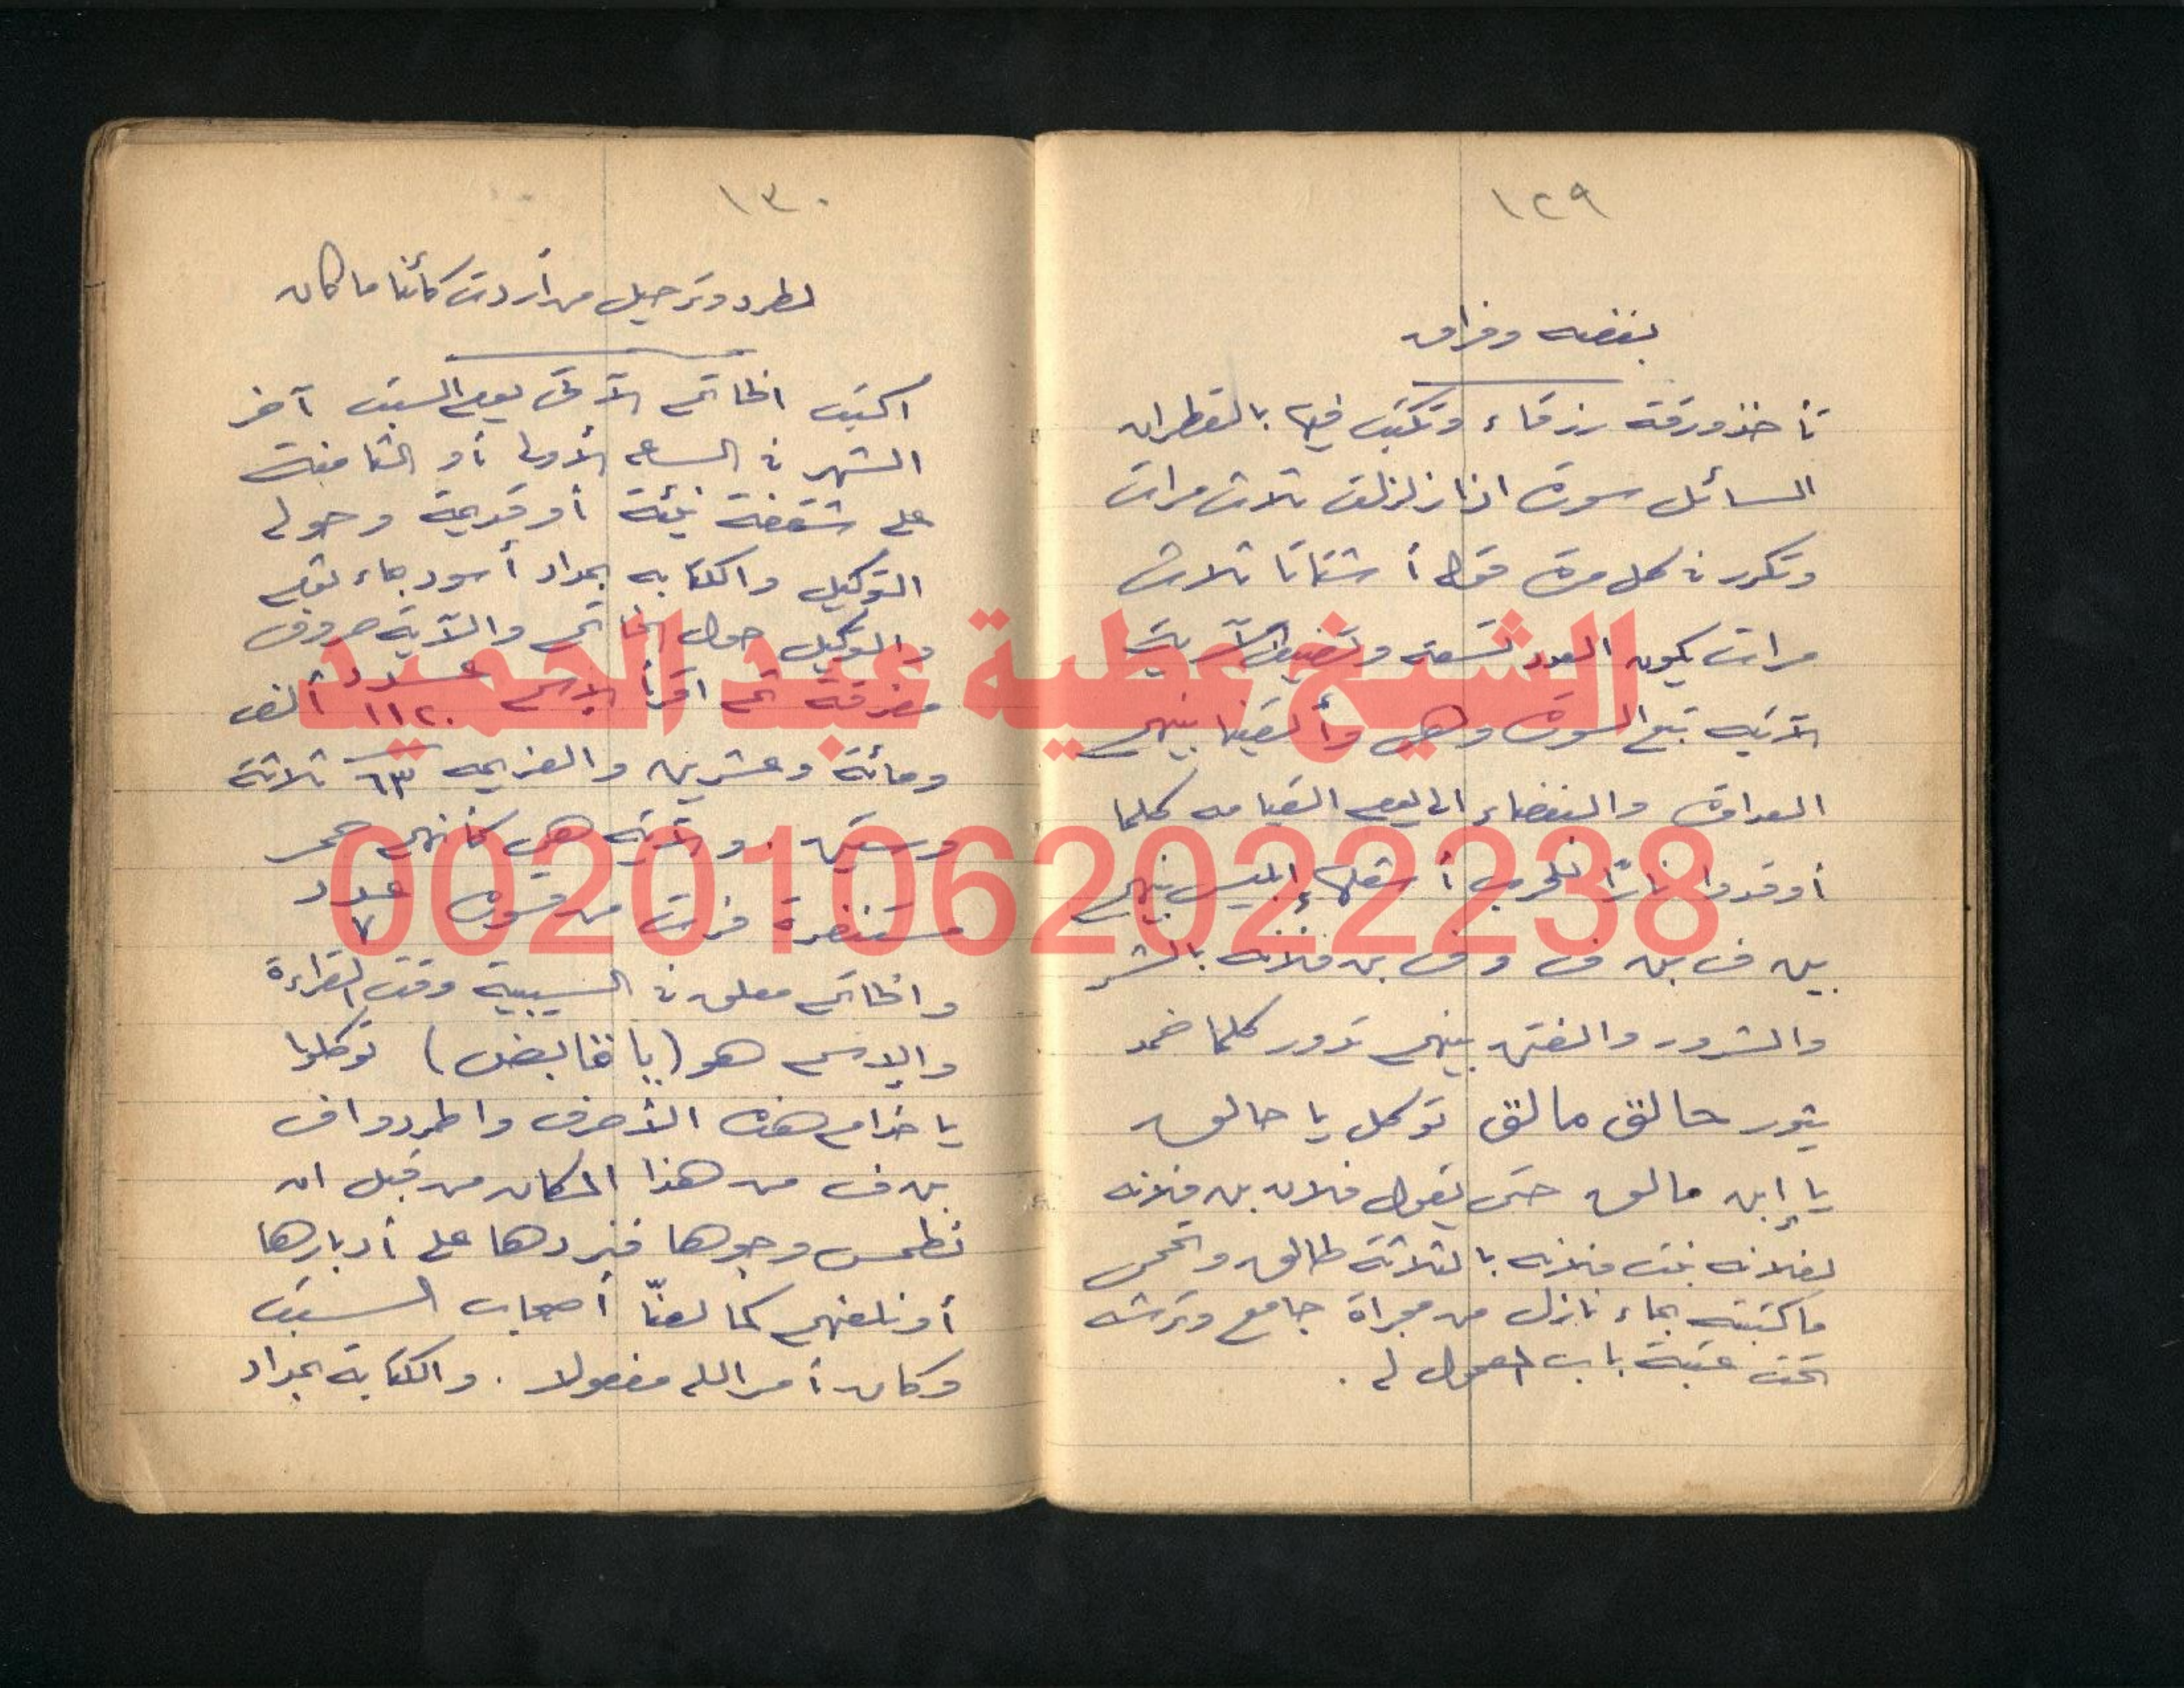 ١٢٩
بغضه وفراق
تأخذ ورقة زرقاء وتكتب فيها بالقطران
السائل سورة اذا زلزلت ثلاث مرات
وتكرر في كل مرة قوله أشتاتا ثلاث
مرات يكون العدد تسعة وتضيف الآية
الآتيه تبع السورة وهى وألقينا بينهم
العداوة والبغضاء الى يوم القيامه كلما
أوقدوا نارًا للحرب أشعلها إبليس بينهم
بين ف بن ف وف بن فلانه بالشر
والشرور والفتن بينهم تدور كلما خمد
يثور حالق مالق توكل يا حالق
يا إبن مالق حتى يقول فلان بن فلانه
لفلانه بنت فلانه بالثلاثة طالق وتمحى
ماكتبته بماء نازل من مجراة جامع وترشه
تحت عتبة باب المعمول له .
١٣٠
لطرد وترحيل من أردت كائنا ما كان
اكتب الخاتم الآتى يوم السبت آخر
الشهر في الساعه الأولى أو الثامنة
على شقفة نيئة أو قديمة وحوله
التوكيل والكتابه بمداد أسود بماء بقلم
والتوكيل حول الخاتم والآية حروف
مفرقة ثم اقرأ الاسم عدد ١١٢٠ ألف
ومائة وعشرين والعزيمه ٦٣ ثلاثة
وستين . والآيه هى كأنهم حمر
مستنفرة فرت من قسورة عدد ٧
والخاتم معلق في السيبية وقت القراءة
والإسم هو (يا قابض) توكلوا
يا خدام هذه الأحرف واطردوا ف
بن ف من هذا المكان من قبل ان
نطمس وجوها فنردها على أدبارها
أو نلعنهم كما لعنّا أصحاب السبت
وكان أمر الله مفعولا . والكتابة بمداد
الشيخ عطية عبد الحميد
00201062022238